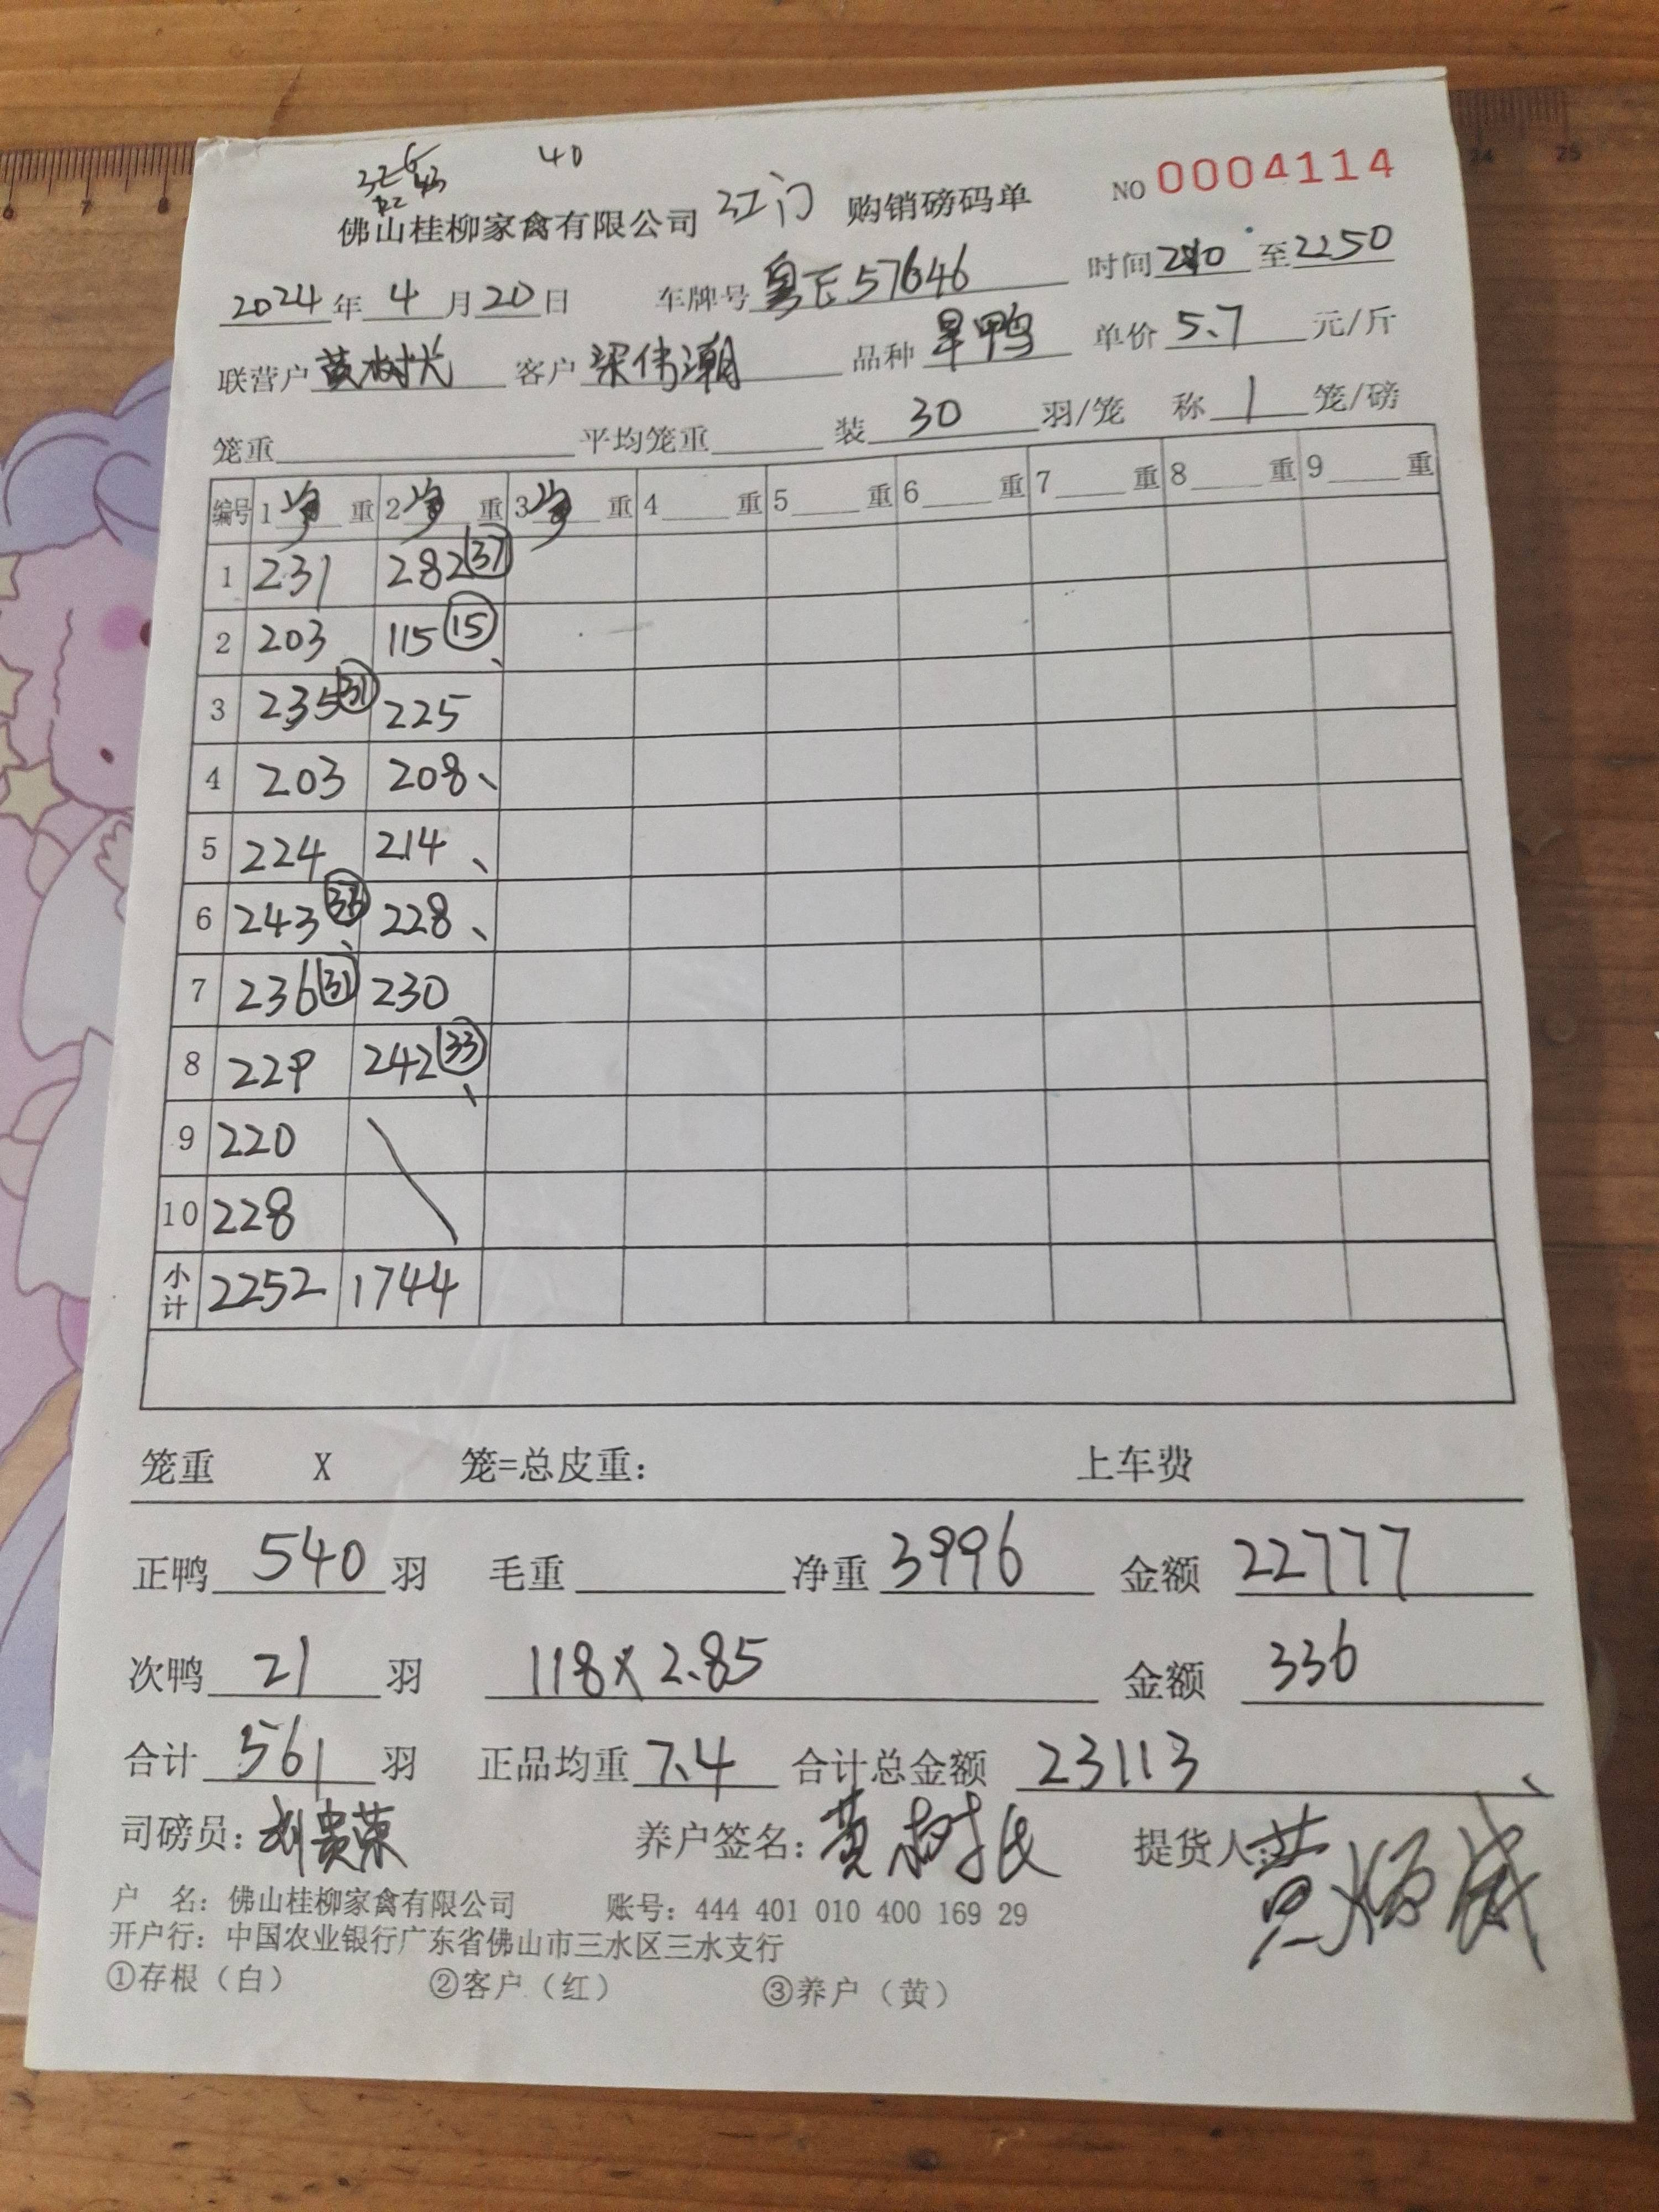 40
佛山桂柳家禽有限公司 江门 购销磅码单 NO 0004114
2024年4月20日 车牌号 粤E57646 时间 至2250
联营户 黄树 客户 梁伟潮 品种 旱鸭 单价 5.7 元/斤
笼重 平均笼重 装 30 羽/笼 称 1 笼/磅
编号 1 净 重 2 净 重 3 净 重 4 重 5 重 6 重 7 重 8 重 9 重
1 231 282 37
2 203 115 15
3 235 31 225
4 203 208
5 224 214
6 243 33 228
7 236 31 230
8 229 242 33
9 220
10 228
小计 2252 1744
笼重 X 笼=总皮重: 上车费
正鸭 540 羽 毛重 净重 3996 金额 22777
次鸭 21 羽 118x2.85 金额 336
合计 561 羽 正品均重 7.4 合计总金额 23113
司磅员: 贵荣 养户签名: 黄树 提货人:
户 名: 佛山桂柳家禽有限公司 账号: 444 401 010 400 169 29
开户行: 中国农业银行广东省佛山市三水区三水支行
①存根（白） ②客户（红） ③养户（黄）